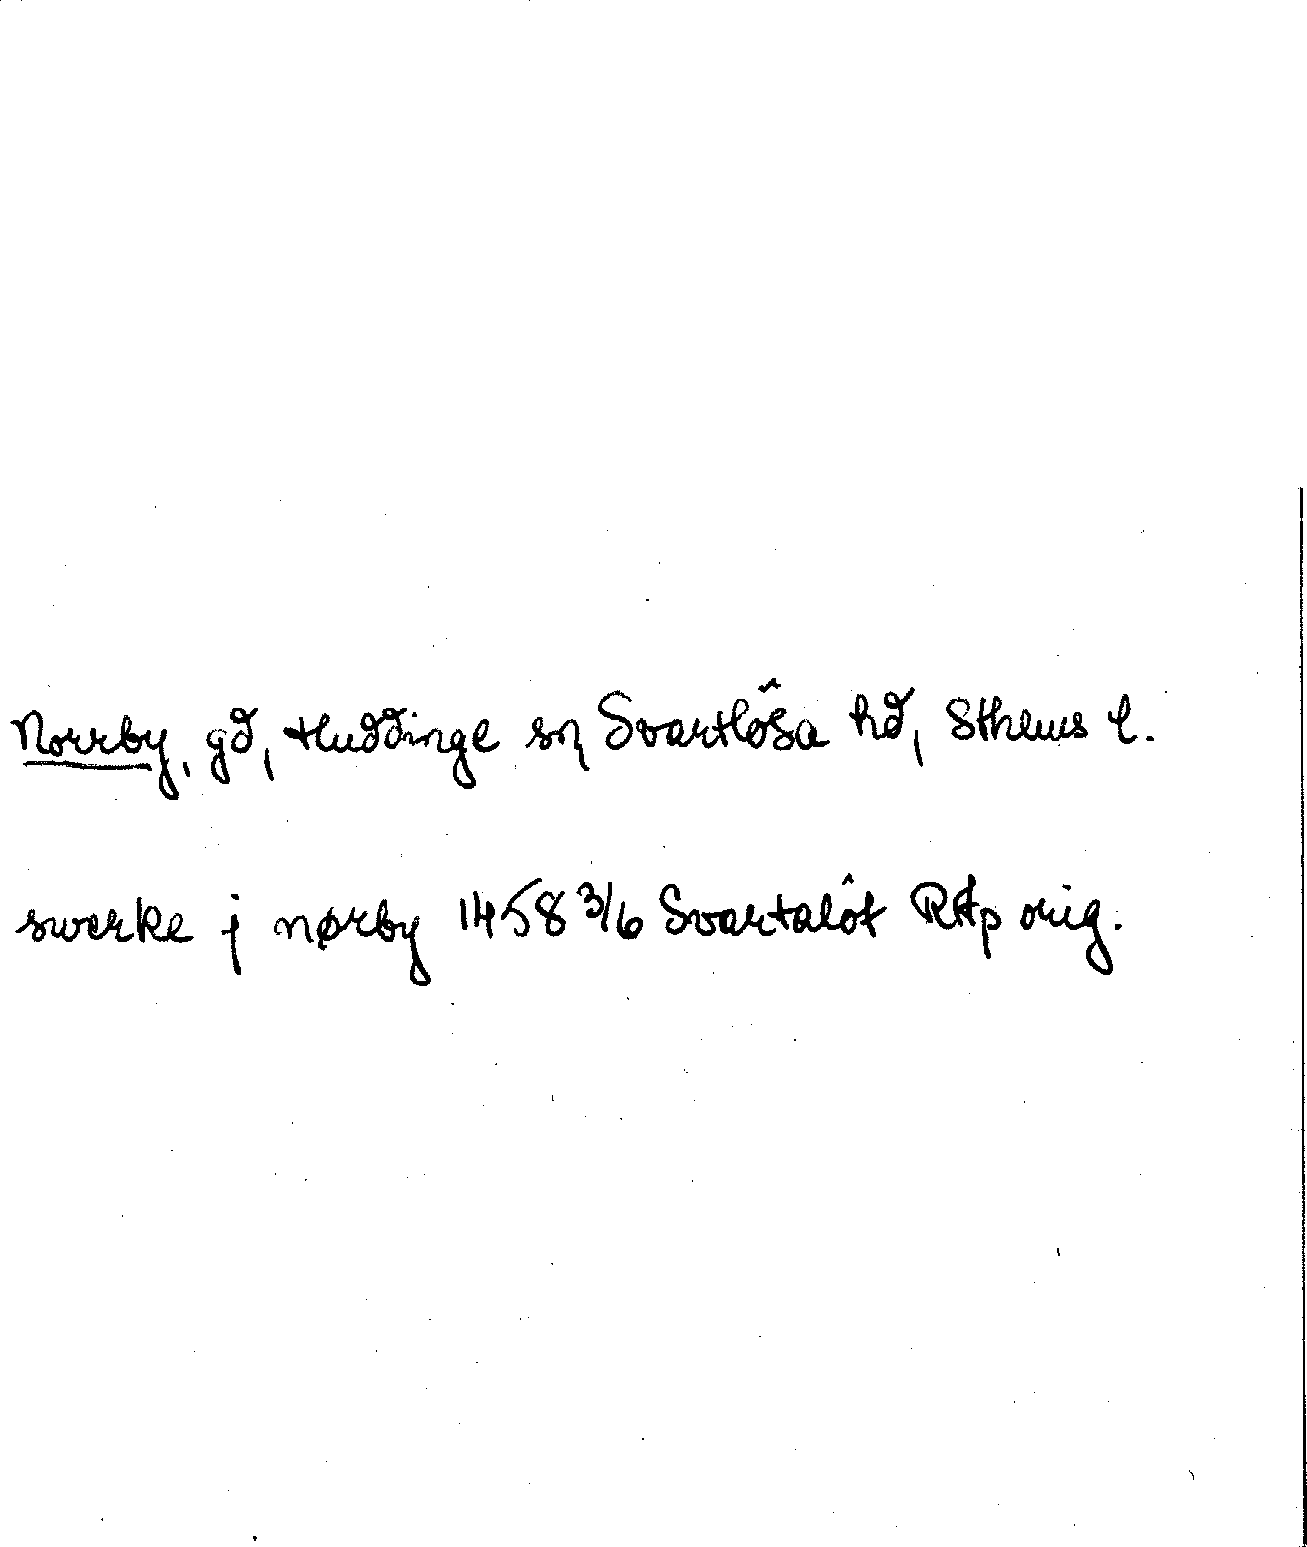 Norrby, gd, Huddinge sn Svartlôsa hd, Sthlms l.
swerke j nørby 1458 3/6 Svartalôt RAp orig.